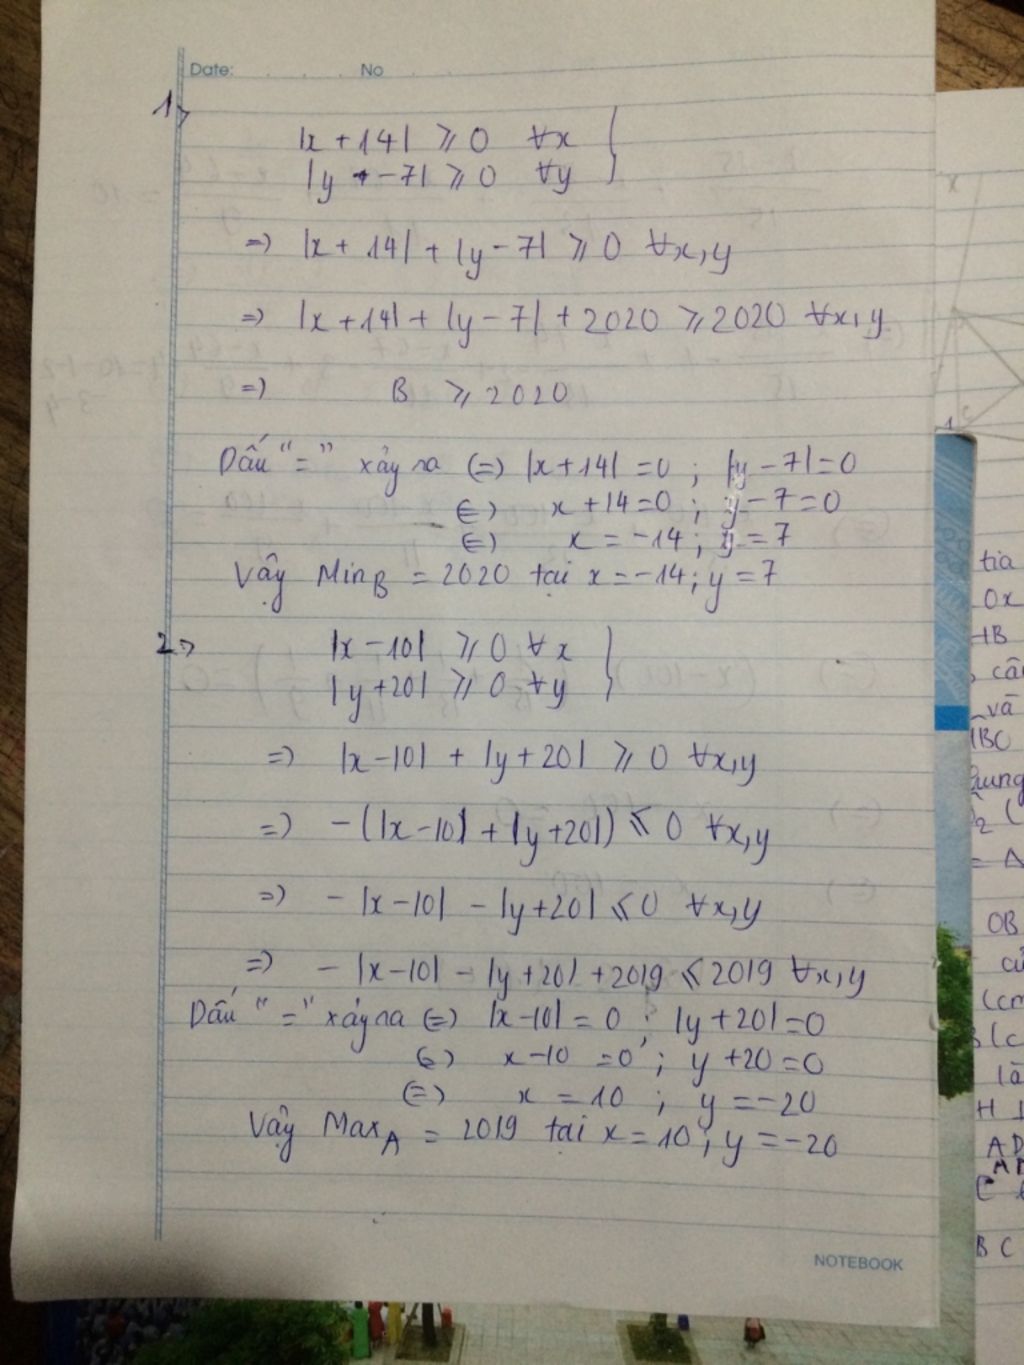 Date: No
1)
|x + 14| ⩾ 0 ∀x
|y - 7| ⩾ 0 ∀y
=) |x + 14| + |y - 7| ⩾ 0 ∀x,y
=) |x + 14| + |y - 7| + 2020 ⩾ 2020 ∀x,y
=) B ⩾ 2020
Dấu "=" xảy ra (=) |x + 14| = 0 ; |y - 7| = 0
(=) x + 14 = 0 ; y - 7 = 0
(=) x = -14 ; y = 7
Vậy Min B = 2020 tại x = -14 ; y = 7
2)
|x - 10| ⩾ 0 ∀x
|y + 20| ⩾ 0 ∀y
=) |x - 10| + |y + 20| ⩾ 0 ∀x,y
=) - (|x - 10| + |y + 20|) ⩽ 0 ∀x,y
=) - |x - 10| - |y + 20| ⩽ 0 ∀x,y
=) - |x - 10| - |y + 20| + 2019 ⩽ 2019 ∀x,y
Dấu "=" xảy ra (=) |x - 10| = 0 ; |y + 20| = 0
(=) x - 10 = 0 ; y + 20 = 0
(=) x = 10 ; y = -20
Vậy Max A = 2019 tại x = 10 ; y = -20
NOTEBOOK
tia
Ox
HB
và
OB
là
AD
BC